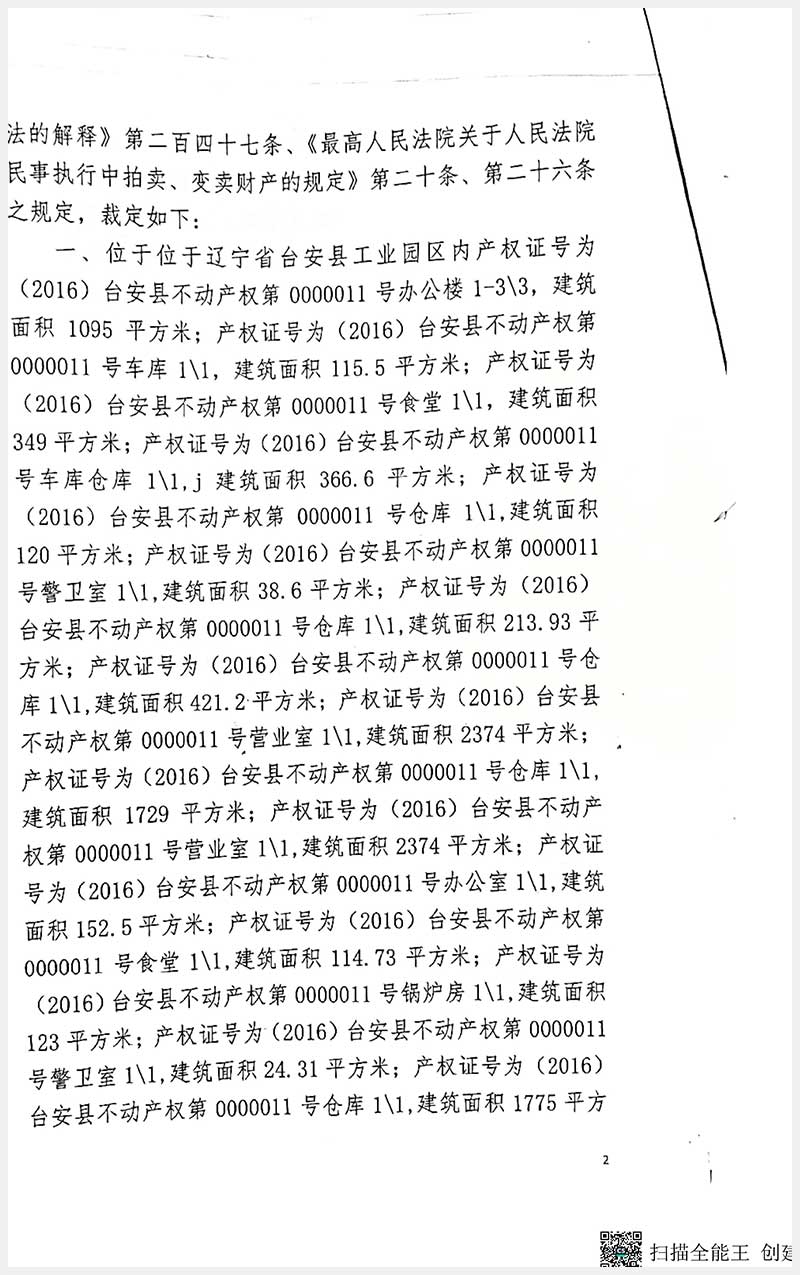 法的解释》第二百四十七条、《最高人民法院关于人民法院
民事执行中拍卖、变卖财产的规定》第二十条、第二十六条
之规定，裁定如下：
一、位于位于辽宁省台安县工业园区内产权证号为
（2016）台安县不动产权第 0000011 号办公楼 1-3\3，建筑
面积 1095 平方米；产权证号为（2016）台安县不动产权第
0000011 号车库 1\1，建筑面积 115.5 平方米；产权证号为
（2016）台安县不动产权第 0000011 号食堂 1\1，建筑面积
349 平方米；产权证号为（2016）台安县不动产权第 0000011
号车库仓库 1\1,j 建筑面积 366.6 平方米；产权证号为
（2016）台安县不动产权第 0000011 号仓库 1\1,建筑面积
120 平方米；产权证号为（2016）台安县不动产权第 0000011
号警卫室 1\1,建筑面积 38.6 平方米；产权证号为（2016）
台安县不动产权第 0000011 号仓库 1\1,建筑面积 213.93 平
方米；产权证号为（2016）台安县不动产权第 0000011 号仓
库 1\1,建筑面积 421.2 平方米；产权证号为（2016）台安县
不动产权第 0000011 号营业室 1\1,建筑面积 2374 平方米；
产权证号为（2016）台安县不动产权第 0000011 号仓库 1\1,
建筑面积 1729 平方米；产权证号为（2016）台安县不动产
权第 0000011 号营业室 1\1,建筑面积 2374 平方米；产权证
号为（2016）台安县不动产权第 0000011 号办公室 1\1,建筑
面积 152.5 平方米；产权证号为（2016）台安县不动产权第
0000011 号食堂 1\1,建筑面积 114.73 平方米；产权证号为
（2016）台安县不动产权第 0000011 号锅炉房 1\1,建筑面积
123 平方米；产权证号为（2016）台安县不动产权第 0000011
号警卫室 1\1,建筑面积 24.31 平方米；产权证号为（2016）
台安县不动产权第 0000011 号仓库 1\1,建筑面积 1775 平方
2
扫描全能王 创建